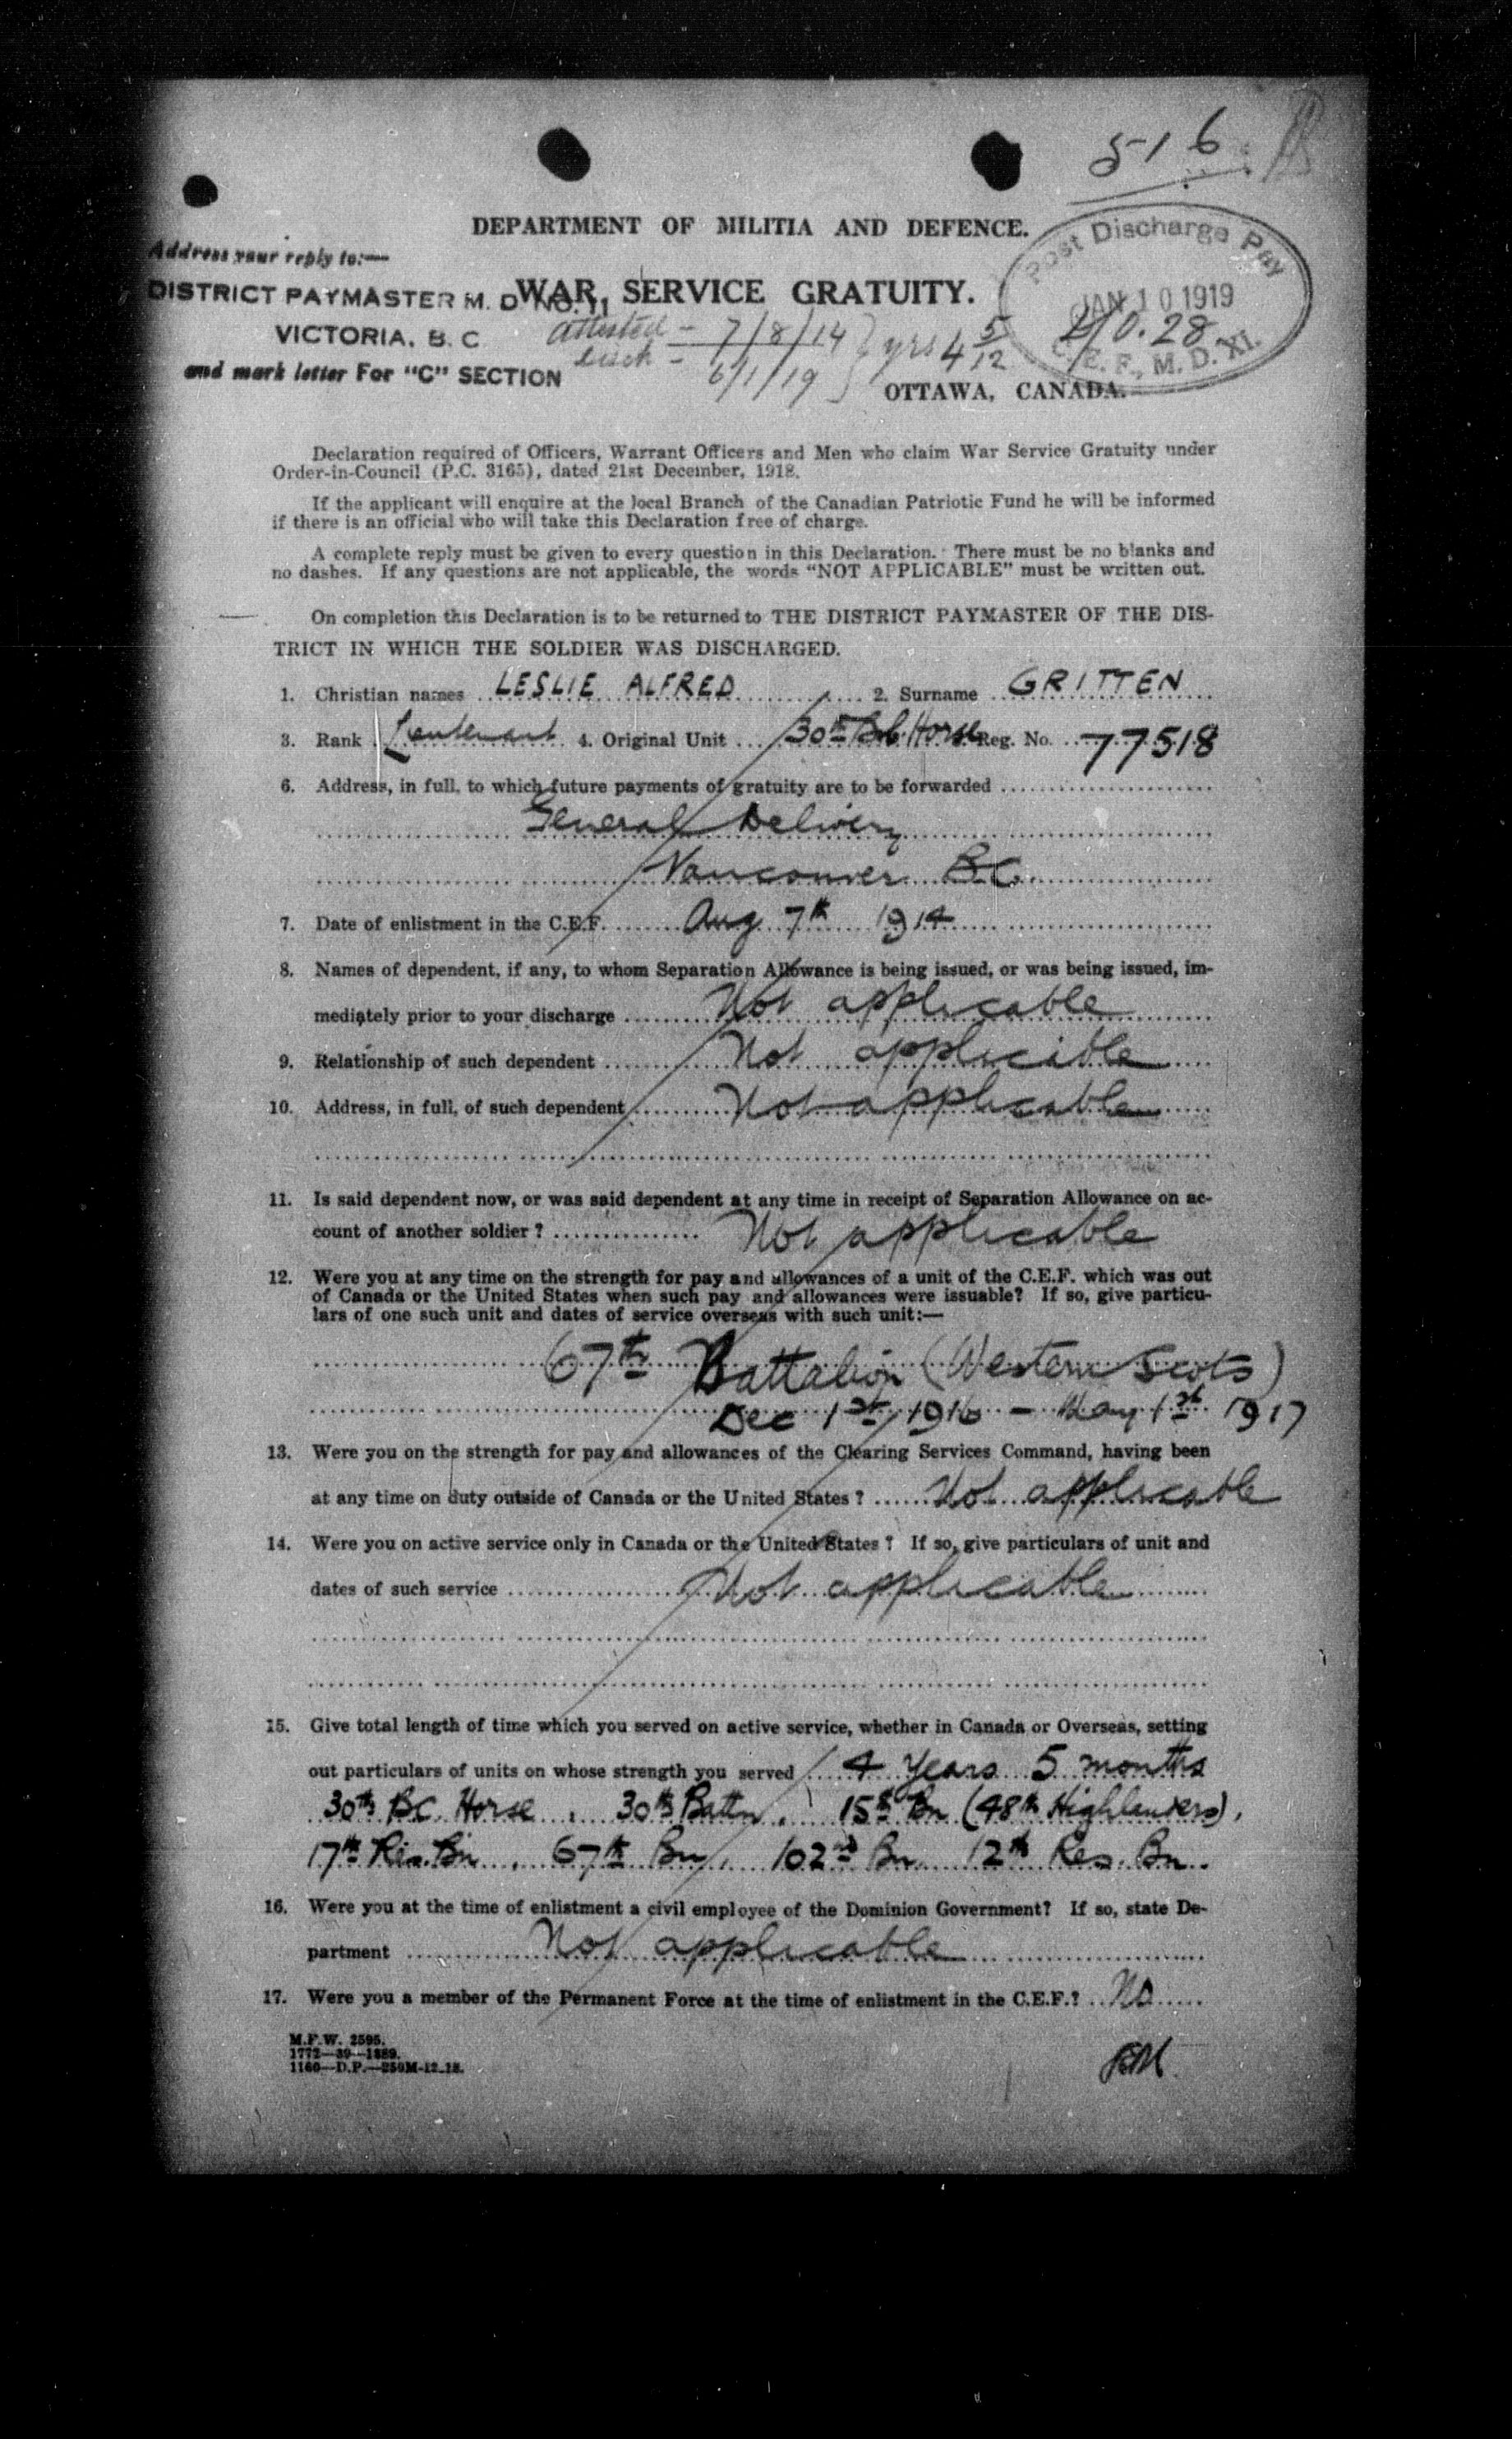 516
DEPARTMENT OF MILITIA AND DEFENCE.
Post Discharge Pay
JAN 10 1919
C.E.F., M.D. XI.
Address your reply to:—
DISTRICT PAYMASTER M. D. NO. 11
VICTORIA, B. C
and mark letter For "C" SECTION
WAR SERVICE GRATUITY.
attested - 7/8/14
disch - 6/1/19
yrs 4 5/12
OTTAWA, CANADA.
Declaration required of Officers, Warrant Officers and Men who claim War Service Gratuity under
Order-in-Council (P.C. 3165), dated 21st December, 1918.
If the applicant will enquire at the local Branch of the Canadian Patriotic Fund he will be informed
if there is an official who will take this Declaration free of charge.
A complete reply must be given to every question in this Declaration. There must be no blanks and
no dashes. If any questions are not applicable, the words "NOT APPLICABLE" must be written out.
On completion this Declaration is to be returned to THE DISTRICT PAYMASTER OF THE DIS-
TRICT IN WHICH THE SOLDIER WAS DISCHARGED.
1. Christian names LESLIE ALFRED 2. Surname GRITTEN
3. Rank Lieutenant 4. Original Unit 30th B.C. Horse Reg. No. 77518
6. Address, in full, to which future payments of gratuity are to be forwarded
General Delivery
Vancouver BC
7. Date of enlistment in the C.E.F. Aug 7th 1914
8. Names of dependent, if any, to whom Separation Allowance is being issued, or was being issued, im-
mediately prior to your discharge Not applicable
9. Relationship of such dependent Not applicable
10. Address, in full, of such dependent Not applicable
11. Is said dependent now, or was said dependent at any time in receipt of Separation Allowance on ac-
count of another soldier? Not applicable
12. Were you at any time on the strength for pay and allowances of a unit of the C.E.F. which was out
of Canada or the United States when such pay and allowances were issuable? If so, give particu-
lars of one such unit and dates of service overseas with such unit:—
67th Battalion (Western Scots)
Dec 1st 1916 - May 1st 1917
13. Were you on the strength for pay and allowances of the Clearing Services Command, having been
at any time on duty outside of Canada or the United States? Not applicable
14. Were you on active service only in Canada or the United States? If so, give particulars of unit and
dates of such service Not applicable
15. Give total length of time which you served on active service, whether in Canada or Overseas, setting
out particulars of units on whose strength you served 4 years 5 months
30th BC. Horse, 30th Battn, 15th Bn (48th Highlanders),
17th Res. Bn, 67th Bn, 102nd Bn. 12th Res. Bn.
16. Were you at the time of enlistment a civil employee of the Dominion Government? If so, state De-
partment Not applicable
17. Were you a member of the Permanent Force at the time of enlistment in the C.E.F.? No
M.F.W. 2595.
1772—39—1889.
1160—D.P.—250M-12-18.